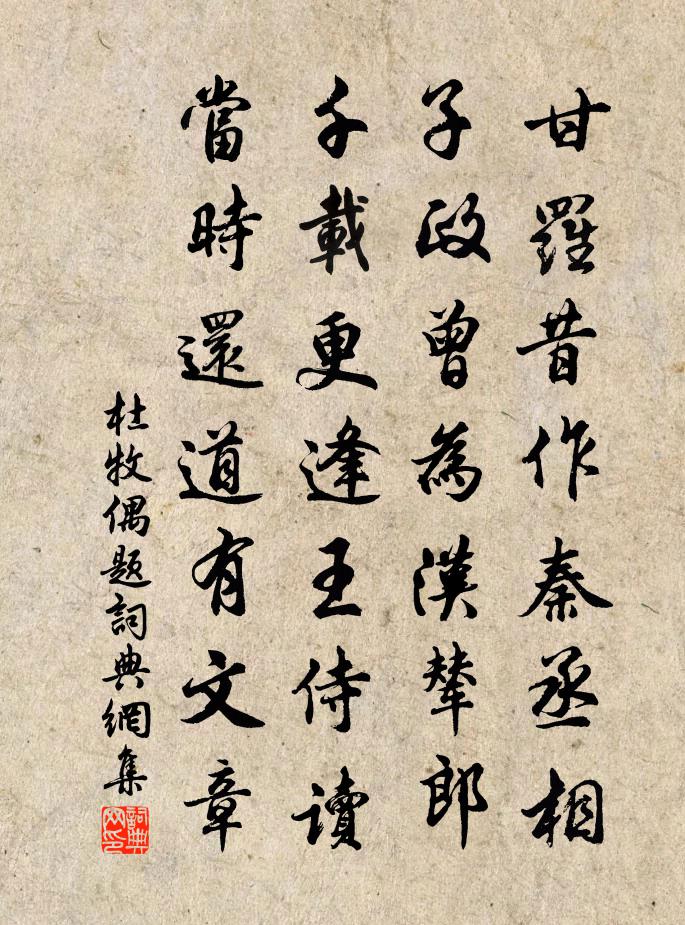 甘羅昔作秦丞相
子政曾為漢輦郎
千載更逢王侍讀
當時還道有文章
杜牧偶題詞典網集
詞典網印